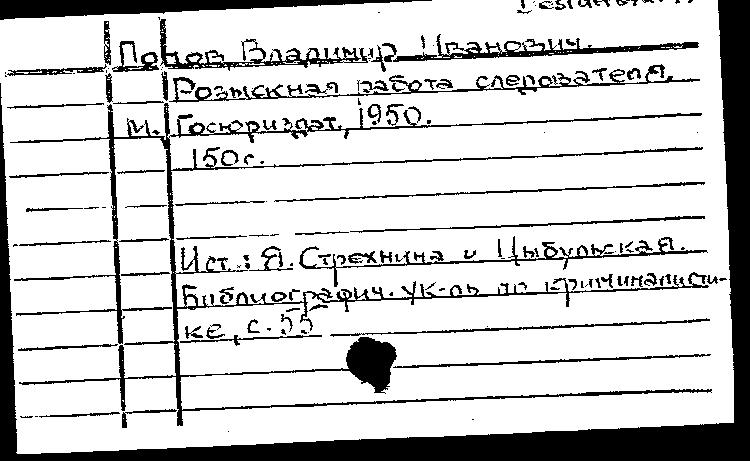 Попов, Владимир Иванович.
Розыскная работа следователя.
М., Госюриздат, 1950.
150 с.
Ист.: Я. Стрехнина и Цыбульская.
Библиографич. ук-ль по криминалисти-
ке, с. 55